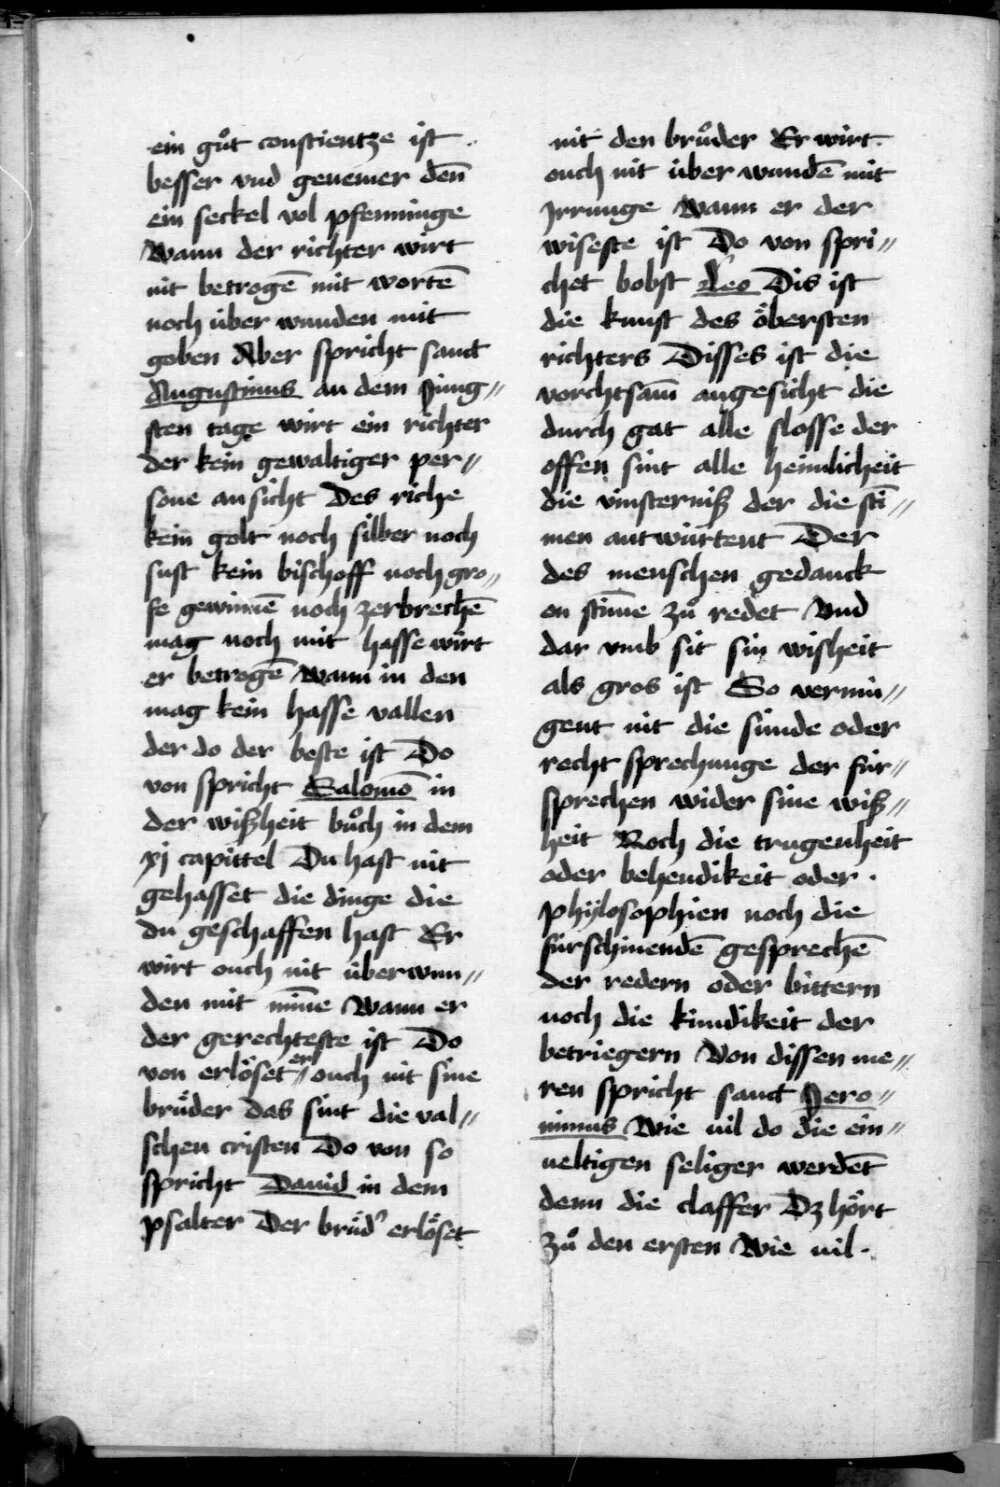 ein guͦt constientze ist
besser vnd genemer deñ
ein seckel vol pfenninge
Wann der richter wirt
nit betrogē mit wortē
noch über wunden mit
goben Aber spricht sanct
Augustinus an dem jüng〃
sten tage wirt ein richter
der kein gewaltiger per〃
sone an sicht Des riche
kein golt noch silber noch
sust kein bischoff noch gro〃
se gewinnē noch zerbrechē
mag noch mit hasse wirt
er betrogē Wann in den
mag kein hasse vallen
der do der beste ist Do
von spricht Salomō in
der wißheit buͦch in dem
xj capittel Du hast nit
gehasset die dinge die
du geschaffen hast Er
wirt ouch nit überwun〃
den mit mīne Wann er
der gerechteste ist Do
von erlöset er ouch nit sine
brüder das sint die val〃
schen cristen Do von so
spricht Dauid in dem
psalter Der brüd' erlöset
nit den bruͦder Er wirt
ouch nit über wundē mit
Jrrunge Wann er der
wiseste ist Do von spri〃
chet bobst Leo Dis ist
die kunst des öbersten
richters Disses ist die
vorchtsam̄ angesicht die
durch gat alle slosse der
offen sint alle heimlicheit
die vinsterniß der die sti̅〃
men antwürtent Der
des menschen gedanck
on stim̄e zuͦ redet Vnd
dar vmb sit sin wisheit
als gros ist So vermü〃
gent nit die sünde oder
recht sprechunge der für〃
sprechen wider sine wiß〃
heit Noch die trugenheit
oder behendikeit oder
phÿlosophien noch die
fürschinendē gesprechē
der redern oder bittern
noch die kundikeit der
betriegern Von dissen me〃
ren spricht sanct Jero〃
nimus Wie vil do die ein〃
veltigen seliger werdēt
denn die claffer Dz hört
zuͦ den ersten Wie vil